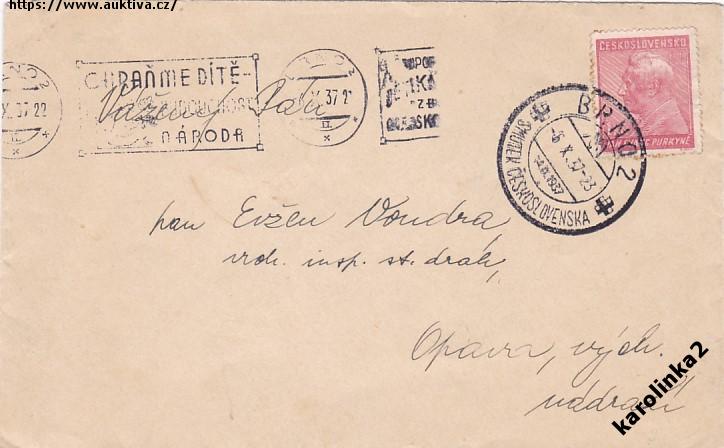 https://www.auktiva.cz/
ČESKOSLOVENSKO
PURKYNĚ
CHRAŇME DÍTĚ-
BUDOUCNOST
NÁRODA
X. 37 22
X. 37 2
BRNO 2
-6.X.37-23
14.IX.1937
SMUTEK ČESKOSLOVENSKA
Vážený Pán
pan Evžen Vondra,
vrch. insp. st. drah,
Opava, vých.
nádraží
karolinka2